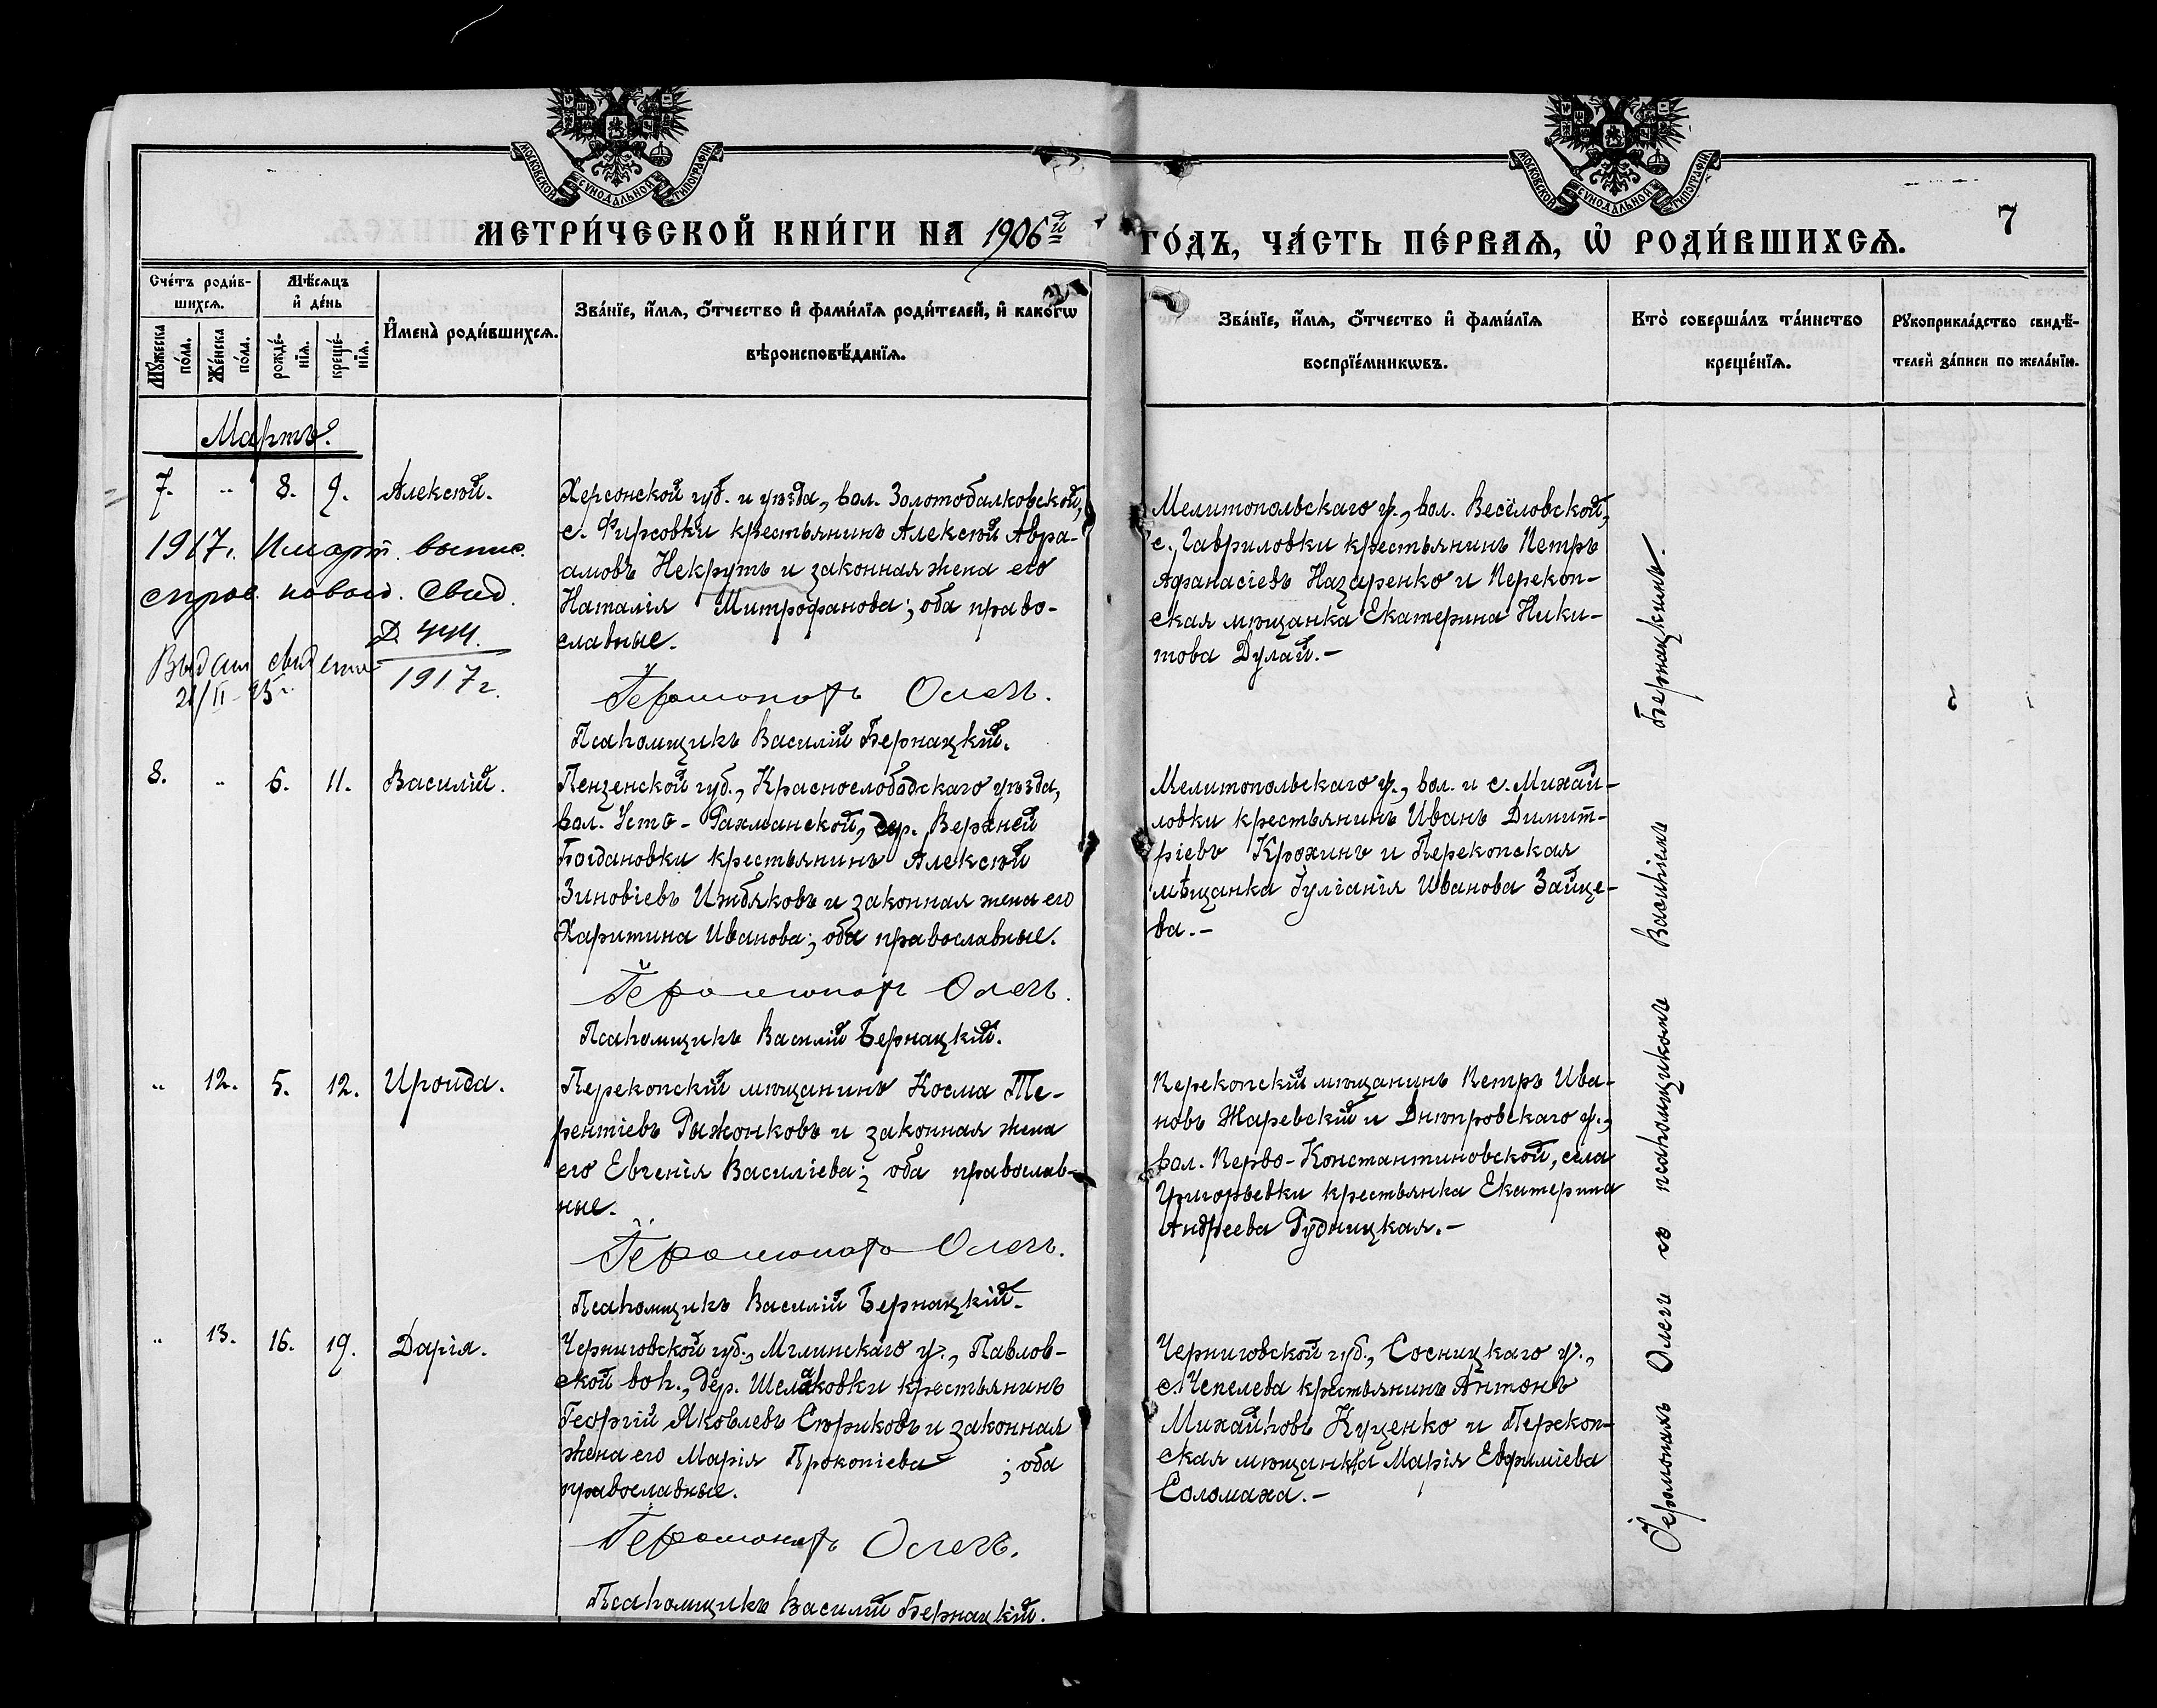 МОСКОВСКОЙ СѴНОДАЛЬНОЙ ТИПОГРАФІИ
МОСКОВСКОЙ СѴНОДАЛЬНОЙ ТИПОГРАФІИ
МЕТРИ́ЧЕСКОЙ КНИ́ГИ НА 1906й
ГО́ДЪ, ЧА́СТЬ ПЕ́РВАѦ, Ѡ҆ РОДИ́ВШИХСѦ.
7
Сче́тъ роди́в-
шихсѧ.
Мꙋ́жеска по́ла.
Же́нска по́ла.
Мѣ́сѧцъ
и҆ де́нь
рожде́-
нїѧ.
креще́-
нїѧ.
И҆мена̀ роди́вшихсѧ.
Зва́нїе, и҆́мѧ, ѻ҆́тчество и҆ фами́лїѧ роди́телей, и҆ како́гѡ
вѣроисповѣ́данїѧ.
Зва́нїе, и҆́мѧ, ѻ҆́тчество и҆ фами́лїѧ
воспрїе́мникѡвъ.
Кто̀ соверша́лъ та́инство
креще́нїѧ.
Рꙋкоприкла́дство свидѣ́-
телей за́писи по жела́нїю.
Мартъ.
7. „ 8. 9. Алексѣй.
Херсонской губ. и уѣзда, вол. Золотобалковской,
с. Фирсовки крестьянинъ Алексѣй Авра-
амовъ Некрутъ и законная жена его
Наталія Митрофанова; оба право-
славные.
Іеромонахъ Олегъ.
Псаломщикъ Василій Бернацкій.
1917г.
Д. 444.
1917 г.
Выдан
21/II
Мелитопольскаго у., вол. Весёловской,
с. Гавриловки крестьянинъ Петръ
Афанасіевъ Назаренко и Перекоп-
ская мѣщанка Екатерина Ники-
това Дулай.-
8. „ 6. 11. Василій.
Пензенской губ., Краснослободскаго уѣзда,
вол. Усть-Рахманской, дер. Верхней
Богдановки крестьянинъ Алексѣй
Зиновіевъ Ижбяковъ и законная жена его
Харитина Иванова; оба православные.
Іеромонахъ Олегъ.
Псаломщикъ Василій Бернацкій.
Мелитопольскаго у., вол. и с. Михай-
ловки крестьянинъ Иванъ Димит-
ріевъ Крохинъ и Перекопская
мѣщанка Іуліанія Иванова Зайце-
ва.-
„ 12. 5. 12. Ираида.
Перекопскій мѣщанинъ Косма Те-
рентіевъ Рыжонковъ и законная жена
его Евгенія Василіева; оба православ-
ные.
Іеромонахъ Олегъ.
Псаломщикъ Василій Бернацкій.
Перекопскій мѣщанинъ Петръ Ива-
новъ Жаревскій и Днѣпровскаго у.,
вол. Перво-Константиновской, села
Григорьевки крестьянка Екатерина
Андреева Рудницкая.-
„ 13. 16. 19. Дарія.
Черниговской губ., Мглинскаго у., Павлов-
ской вол., дер. Шелаковки крестьянинъ
Георгій Яковлевъ Сѣриковъ и законная
жена его Марія Прокопіева ; оба
православные.
Іеромонахъ Олегъ.
Псаломщикъ Василій Бернацкій.
Черниговской губ., Сосницкаго у.,
с. Чепелева крестьянинъ Антонъ
Михайловъ Куценко и Перекоп-
ская мѣщанка Марія Евфиміева
Соломаха.-
Іеромонахъ Олегъ съ псаломщикомъ Василіемъ Бернацкимъ.